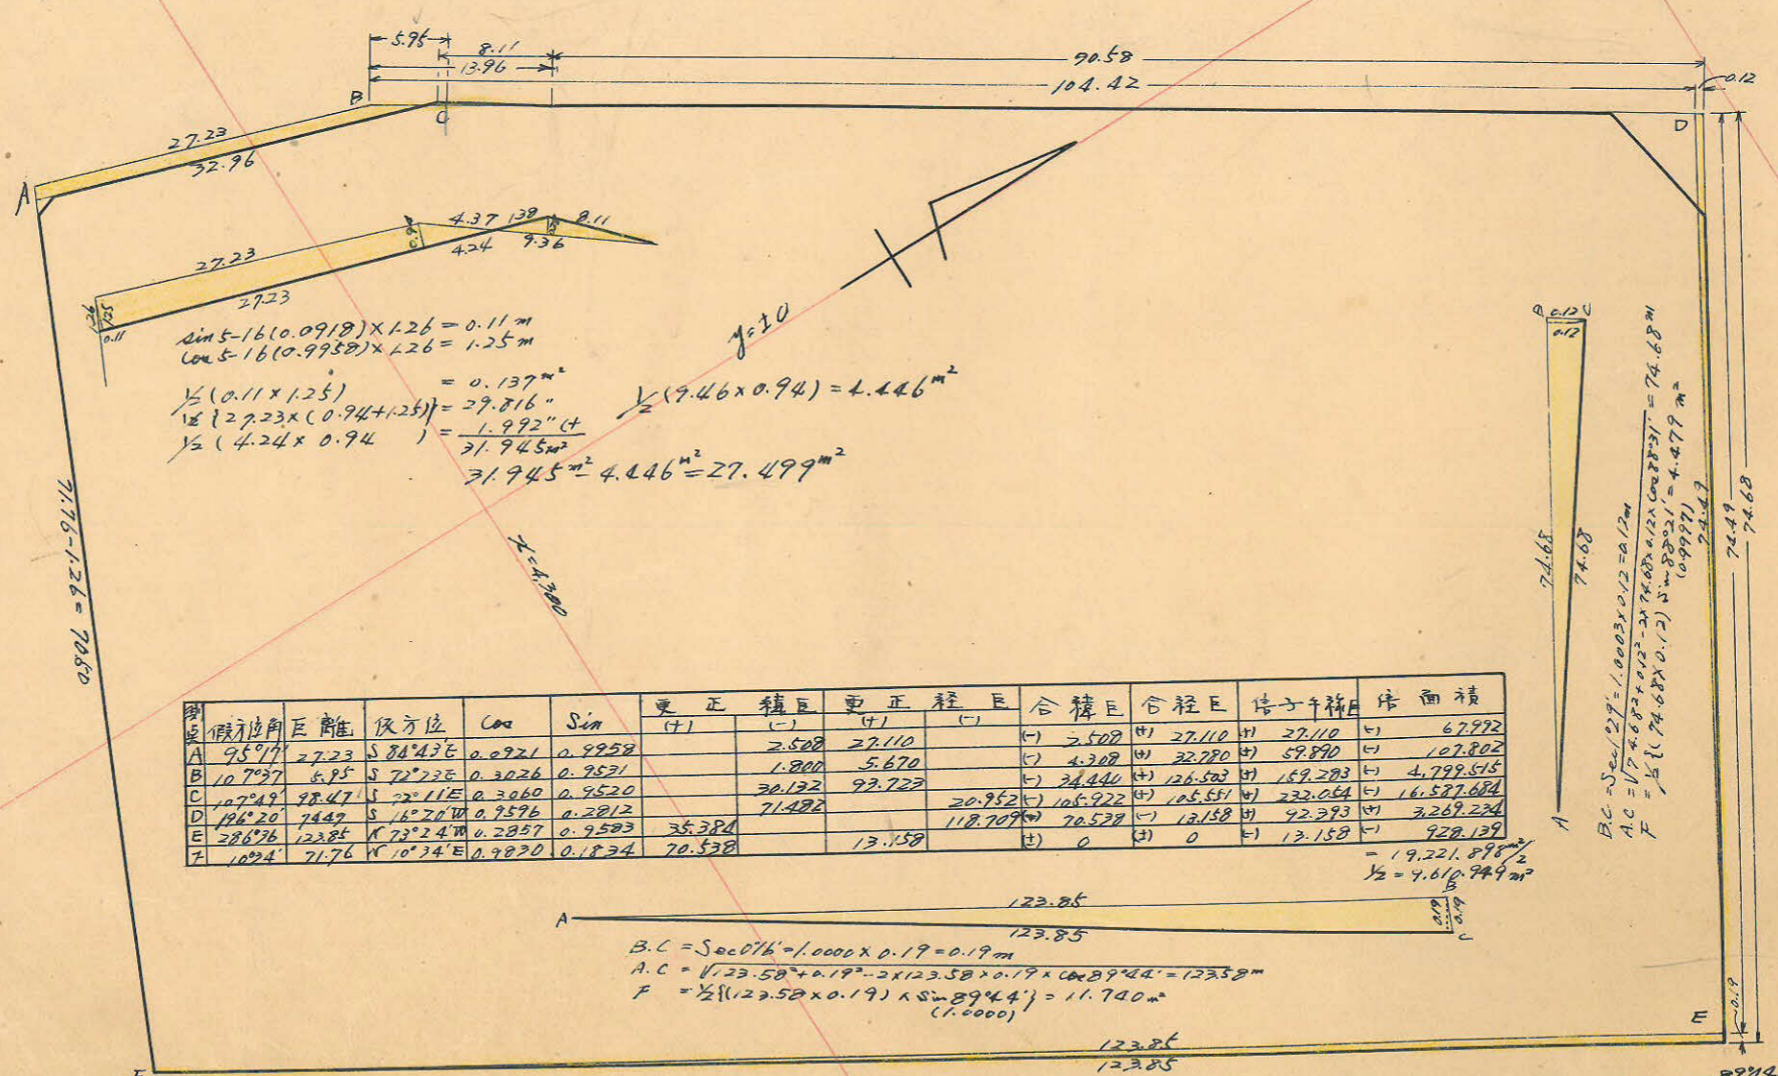 5.95
8.11
13.96
90.58
104.42
0.12
B
C
D
27.23
32.96
A
4.37 1.38 8.11
0.94
4.24 9.36
27.23
27.23
1.26
1.25
0.11
sin 5-16(0.0918)×1.26 = 0.11 m
cos 5-16(0.9958)×1.26 = 1.25 m
½(0.11×1.25) = 0.137 m²
½{27.23×(0.94+1.25)} = 29.816 〃
½(4.24×0.94) = 1.992〃(+
31.945m²
½(9.46×0.94) = 4.446 m²
31.945 m² - 4.446 m² = 27.499 m²
y=±0
x=4.300
71.76-1.26=70.50
B 0.12 C
0.12
74.68
74.68
A
B.C = Sec1°29′=1.0003×0.12=0.12m
A.C = √74.68²+0.12²-2×74.68×0.12×cos88°31′ = 74.68m
F = ½{(74.68×0.12) sin88°21′ = 4.479 m²
(0.9997)
74.49
74.49
74.68
測点 假方位角 巨離 仮方位 Cos Sin 更正緯巨 (+) (-) 更正経巨 (+) (-) 合緯巨 合経巨 倍子午線巨 倍面積
A 95°17′ 27.23 S 84°43′E 0.0921 0.9958 2.508 27.110 (-) 2.508 (+) 27.110 (+) 27.110 (-) 67.992
B 107°37 5.95 S 72°23E 0.3026 0.9531 1.800 5.670 (-) 4.308 (+) 32.780 (+) 59.890 (-) 107.802
C 107°49′ 98.47 S 72°11E 0.3060 0.9520 30.132 93.723 (-) 34.440 (+) 126.503 (+) 159.283 (-) 4,799.515
D 196°20′ 74.49 S 16°20′W 0.9596 0.2812 71.482 20.952 (-) 105.922 (+) 105.551 (+) 232.054 (-) 16,587.684
E 286°36 123.85 N 73°24′W 0.2857 0.9583 35.384 118.709 (-) 70.538 (-) 13.158 (+) 92.393 (+) 3,269.234
F 10°34′ 71.76 N 10°34′E 0.9830 0.1834 70.538 13.158 (±) 0 (±) 0 (-) 13.158 (-) 928.139
= 19,221.898 m²/2
½ = 9,610.949 m²
123.85
A
B
0.19
0.19
123.85
C
B.C = Sec0°16′=1.0000×0.19=0.19m
A.C = √123.58²+0.19²-2×123.58×0.19×cos89°44′=123.58m
F = ½{(123.58×0.19)×sin89°44′}=11.740m²
(1.0000)
0.19
E
123.85
123.85
F
89°44